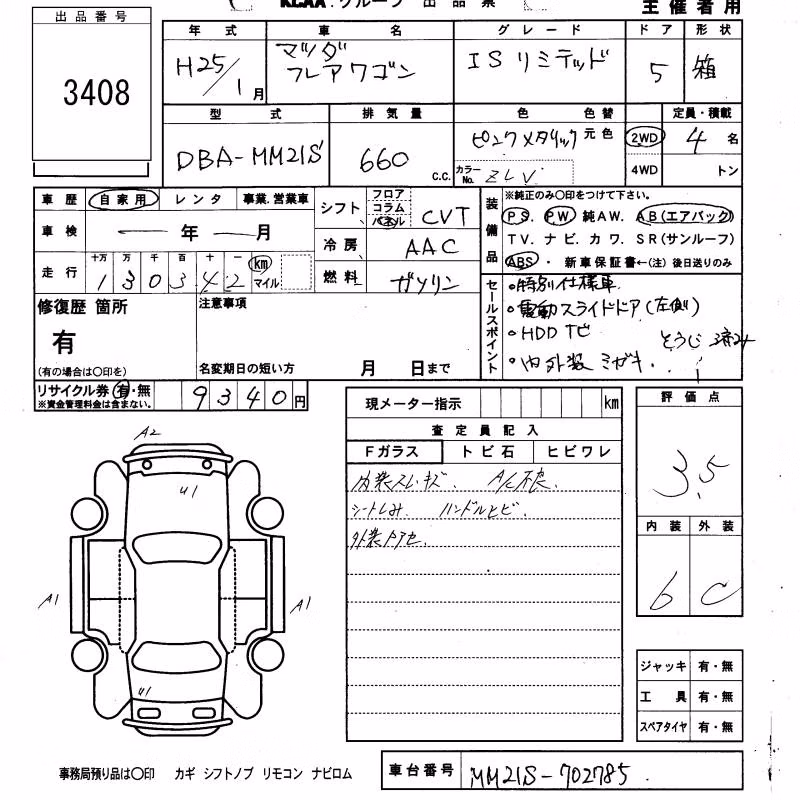 KCAA グループ 出品票
主催者用
出品番号
3408
年式 車名 グレード ドア 形状
H25/1月 マツダ フレアワゴン ISリミテッド 5 箱
型式 排気量 色 色替 定員・積載
DBA-MM21S 660 C.C. ピンクメタリック 元色 2WD 4名
カラーNo. ZLV 4WD トン
車歴 自家用 レンタ 事業.営業車
シフト フロア コラム パネル CVT
車検 年 月
冷房 AAC
走行 十万 万 千 百 十 一 km マイル
1 3 0 3 4 2
燃料 ガソリン
装備品
※純正のみ〇印をつけて下さい。
PS. PW 純AW. AB(エアバック)
TV. ナビ. カワ. SR(サンルーフ)
ABS・ 新車保証書←(注) 後日送りのみ
修復歴 箇所
有
(有の場合は〇印を)
注意事項
名変期日の短い方 月 日まで
セールスポイント
・特別仕様車
・電動スライドドア(左側)
・HDD ナビ
・内外装ミガキ. そうじ済み!
リサイクル券 有・無 9340円
※資金管理料金は含まない。
現メーター指示 km
査定員記入
Fガラス トビ石 ヒビワレ
内装スレ・キズ. A/C不良.
シートしみ. ハンドルヒビ.
外装
評価点
3.5
内装 外装
6 C
A2
U1
A1
A1
U1
ジャッキ 有・無
工具 有・無
スペアタイヤ 有・無
事務局預り品は〇印 カギ シフトノブ リモコン ナビロム
車台番号 MM21S-702785.